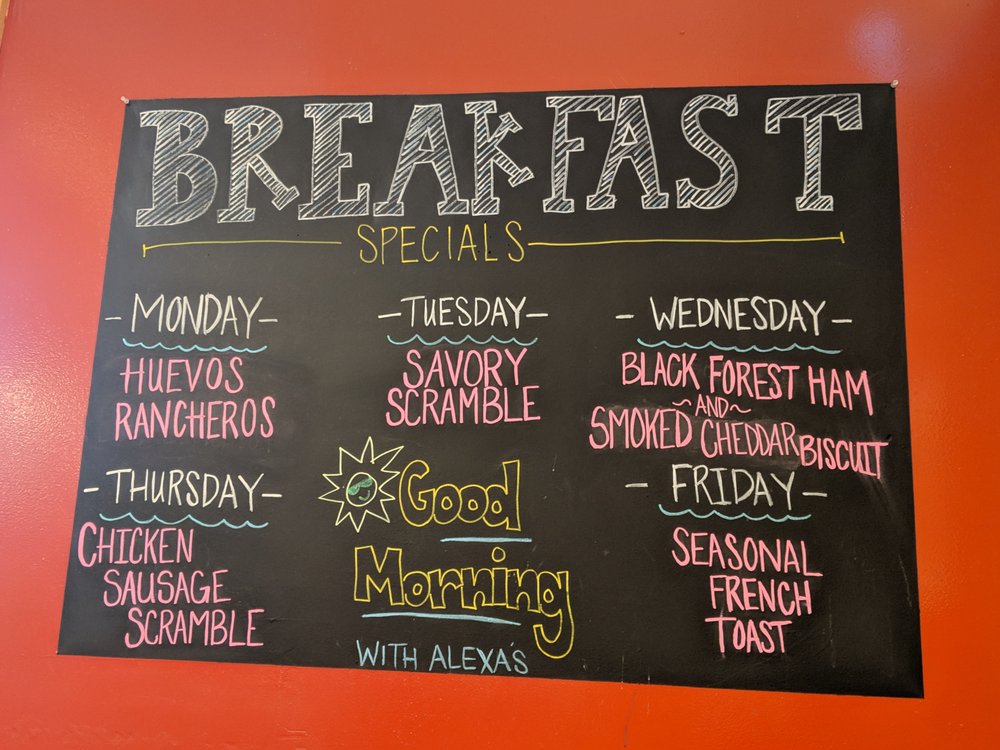 BREAKFAST
SPECIALS
- MONDAY -
HUEVOS
RANCHEROS
- TUESDAY -
SAVORY
SCRAMBLE
- WEDNESDAY -
BLACK FOREST HAM
~ AND ~
SMOKED CHEDDAR BISCUIT
- THURSDAY -
CHICKEN
SAUSAGE
SCRAMBLE
Good
Morning
WITH ALEXA'S
- FRIDAY -
SEASONAL
FRENCH
TOAST